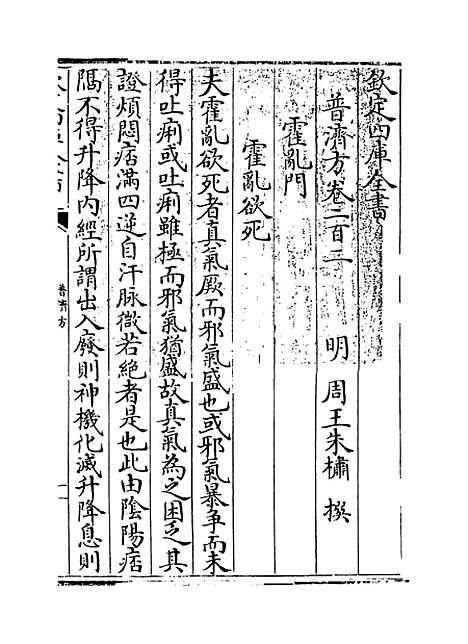 欽定四庫全書
普濟方卷二百二
明 周王朱橚 撰
霍亂門
霍亂欲死
夫霍亂欲死者真氣厥而邪氣盛也或邪氣暴争而未
得吐痢或吐痢雖極而邪氣猶盛故真氣為之困乏其
證煩悶痞滿四逆自汗脉微若絶者是也此由陰陽痞
隔不得升降内經所謂出入廢則神機化滅升降息則
普濟方
一